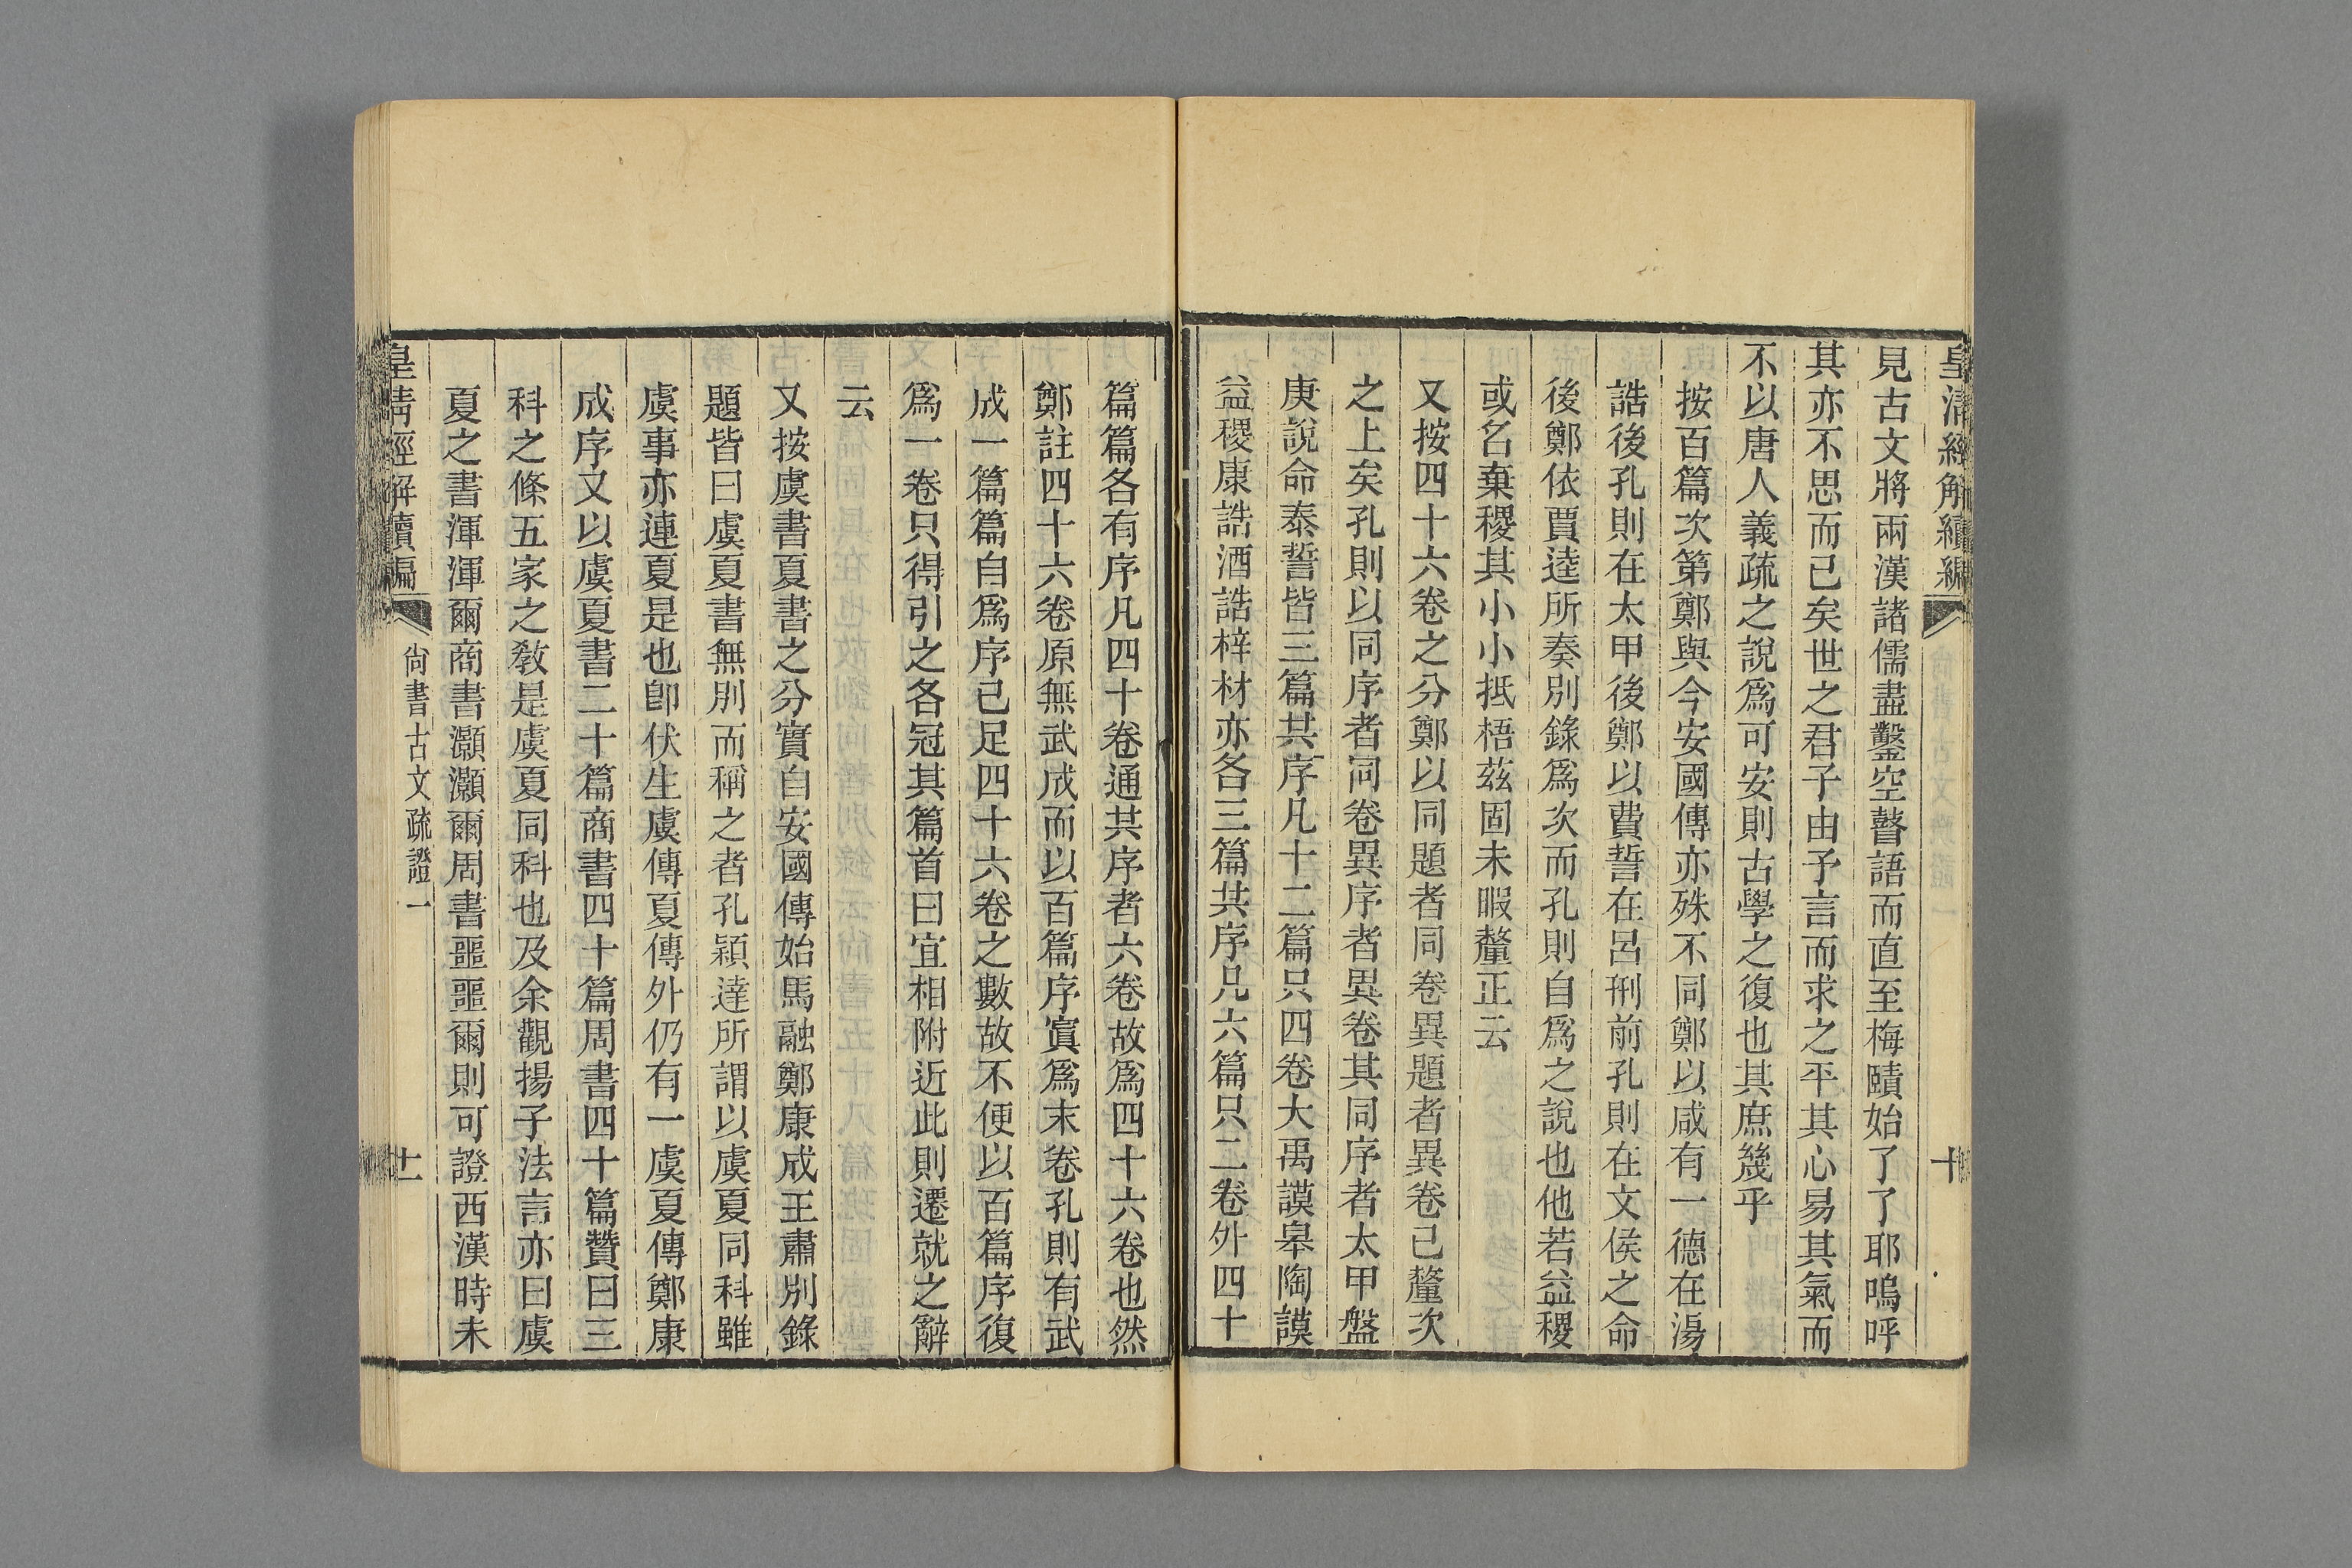 皇清經解續編
十
見古文將兩漢諸儒盡鑿空瞽語而直至梅賾始了了耶嗚呼
其亦不思而已矣世之君子由予言而求之平其心易其氣而
不以唐人義疏之說爲可安則古學之復也其庶幾乎
按百篇次第鄭與今安國傳亦殊不同鄭以咸有一德在湯
誥後孔則在太甲後鄭以費誓在呂刑前孔則在文侯之命
後鄭依賈逵所奏別錄爲次而孔則自爲之說也他若益稷
或名棄稷其小小抵梧茲固未暇釐正云
又按四十六卷之分鄭以同題者同卷異題者異卷已釐次
之上矣孔則以同序者同卷異序者異卷其同序者太甲盤
庚說命泰誓皆三篇共序凡十二篇只四卷大禹謨皋陶謨
益稷康誥酒誥梓材亦各三篇共序凡六篇只二卷外四十
篇篇各有序凡四十卷通共序者六卷故爲四十六卷也然
鄭註四十六卷原無武成而以百篇序寘爲末卷孔則有武
成一篇篇自爲序已足四十六卷之數故不便以百篇序復
爲一卷只得引之各冠其篇首曰宜相附近此則遷就之辭
云
又按虞書夏書之分實自安國傳始馬融鄭康成王肅別錄
題皆曰虞夏書無別而稱之者孔穎達所謂以虞夏同科雖
虞事亦連夏是也卽伏生虞傳夏傳外仍有一虞夏傳鄭康
成序又以虞夏書二十篇商書四十篇周書四十篇贊曰三
科之條五家之教是虞夏同科也及余觀揚子法言亦曰虞
夏之書渾渾爾商書灝灝爾周書噩噩爾則可證西漢時未
皇清經解續編
尚書古文疏證一
十一